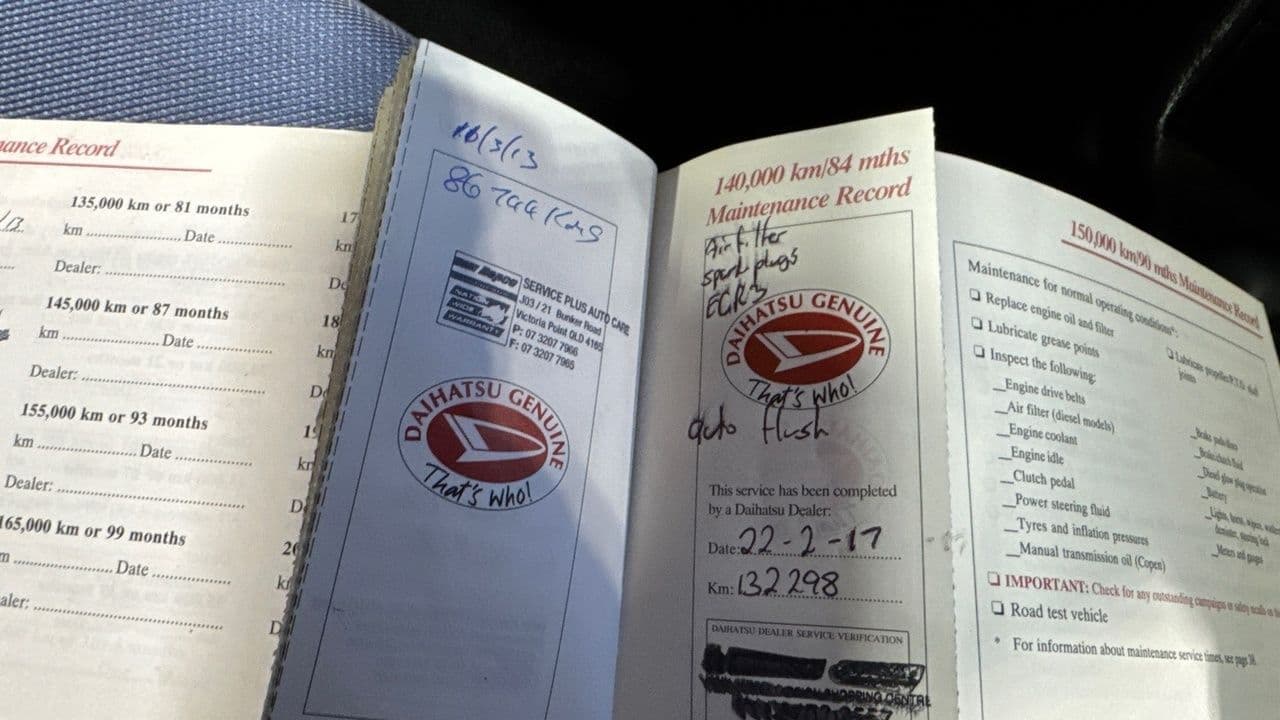 nance Record
135,000 km or 81 months
km .................... Date ................
Dealer: ........................................
145,000 km or 87 months
km .................... Date ................
Dealer: ........................................
155,000 km or 93 months
km .................... Date ................
Dealer: ........................................
165,000 km or 99 months
m .................... Date ................
aler: ........................................
17
km
18
km
16/3/13
SERVICE PLUS AUTO CARE
J03 / 21 Bunker Road
Victoria Point QLD 4165
P: 07 3207 7966
F: 07 3207 7965
NATION
WIDE
WARRANTY
DAIHATSU GENUINE
That's who!
140,000 km/84 mths
Maintenance Record
Air filter
spark plugs
DAIHATSU GENUINE
That's who!
auto flush
This service has been completed
by a Daihatsu Dealer:
Date: 22-2-17
Km: 132298
DAIHATSU DEALER SERVICE VERIFICATION
SHOPPING CENTRE
150,000 km/90 mths Maintenance Record
Maintenance for normal operating conditions*:
❑ Replace engine oil and filter
❑ Lubricate grease points
❑ Inspect the following:
__Engine drive belts
__Air filter (diesel models)
__Engine coolant
__Engine idle
__Clutch pedal
__Power steering fluid
__Tyres and inflation pressures
__Manual transmission oil (Copen)
❑ Lubricate propeller/P.T.O. shaft
joints
__Brake pads/discs
__Brake/clutch fluid
__Diesel glow plug operation
__Battery
__Meters and gauges
❑ IMPORTANT: Check for any outstanding campaigns or safety recalls
❑ Road test vehicle
* For information about maintenance service times, see page